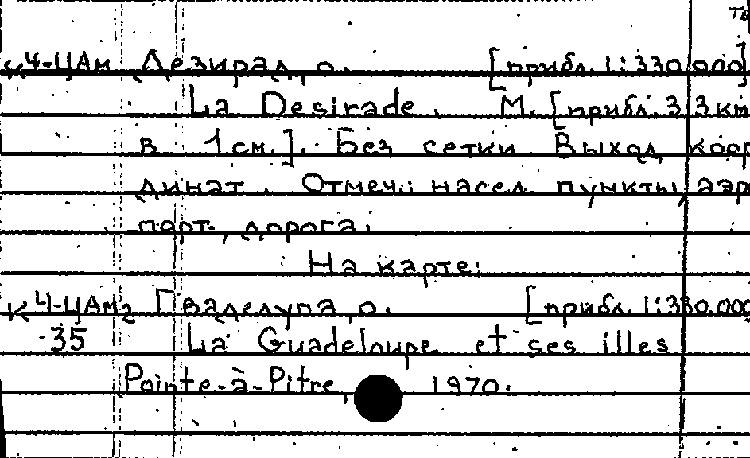 к4-ЦАм Дезирад, о. [прибл. 1:330.000]
La Desirade. М. [прибл. 3,3 km
в 1 см.]. Без сетки. Выход коор
динат. Отмеч: насел. пункты, аэр
порт, дорога.
На карте:
к4-ЦАм2 Гваделупа, о. [прибл. 1:330.000
-35 La Guadeloupe et ses illes
Pointe-à-Pitre, 1970.